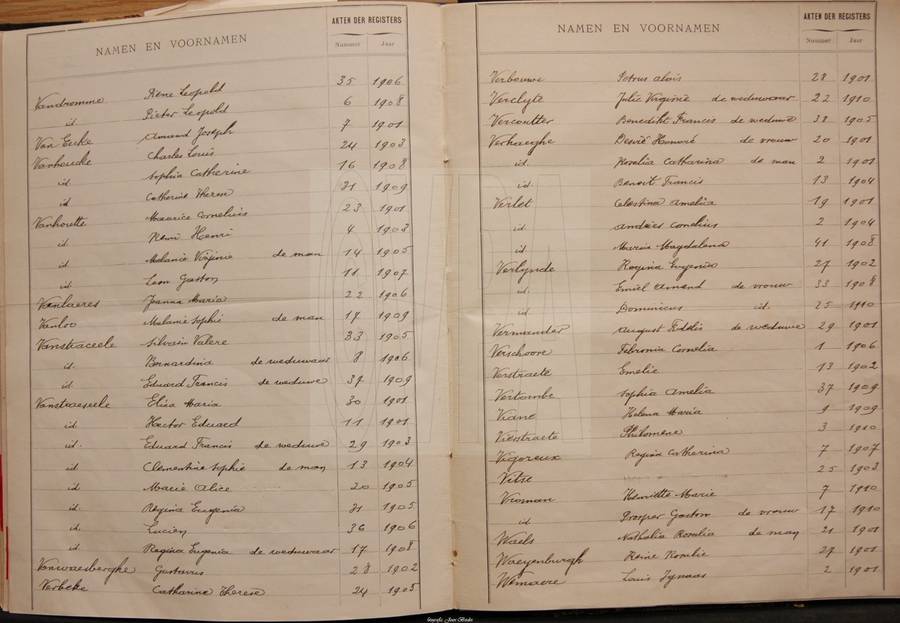 NAMEN EN VOORNAMEN AKTEN DER REGISTERS
Nummer Jaar
Vandromme Rene Leopold 35 1906
id Pieter Leopold 6 1908
Van Eecke Amand Joseph 7 1901
Vanhoucke Charles Louis 24 1903
id Sophia Catherine 16 1908
id Catherine Therese 31 1909
Vanhoutte Maurice Cornelius 23 1901
id Remi Henri 4 1903
id Melanie Virginie de man 14 1905
id Leon Gaston 11 1907
Vanlaeres Joanna Maria 22 1906
Vanloo Melanie Sophie de man 17 1909
Vanstraceele Silvain Valere 33 1905
id. Bernardina de weduwaar 8 1906
id Eduard Francis de weduwe 37 1909
Vanstraeseele Eliza Maria 30 1901
id Hector Eduard 11 1901
id. Eduard Francis de weduwe 29 1903
id Clementine Sophie de man 13 1904
id Marie Alice 20 1905
id Regina Eugenia 31 1905
id Lucien 36 1906
id Regina Eugenia de weduwaar 17 1908
Vanwaesberghe Gustavus 28 1902
Verbeke Catharine Therese 24 1905
NAMEN EN VOORNAMEN AKTEN DER REGISTERS
Nummer Jaar
Verbouwe Petrus Aloïs 28 1901
Verclyte Julie Virginie de weduwaar 22 1910
Vercoutter Benedikt Francis de weduwe 38 1905
Verhaeghe Désiré Honoré de vrouw 20 1901
id. Rosalia Catharina de man 2 1901
id. Benoit Francis 13 1904
Verlet Celestina Amelia 19 1901
id Andries Cornelius 2 1904
id. Maria Magdalena 41 1908
Verlynde Regina Eugenie 27 1902
id. Emiel Amand de vrouw 33 1908
id Dominicus id. 25 1910
Vermander August Fidélis de weduwe 29 1901
Verschoore Febronia Cornelia 1 1906
Verstraete Emelie 13 1902
Vertombe Sophia Amelia 37 1909
Viane Helena Maria 9 1909
Vierstraete Philomene 3 1910
Vigoreux Regina Catherina 7 1907
Vitse 25 1903
Vroman Henriette Marie 7 1910
id Prosper Gaston de vrouw 17 1910
Waels Nathalia Rosalia de man 21 1901
Waeyenburgh Reine Rosalie 27 1901
Wemaere Louis Ignaas 2 1901